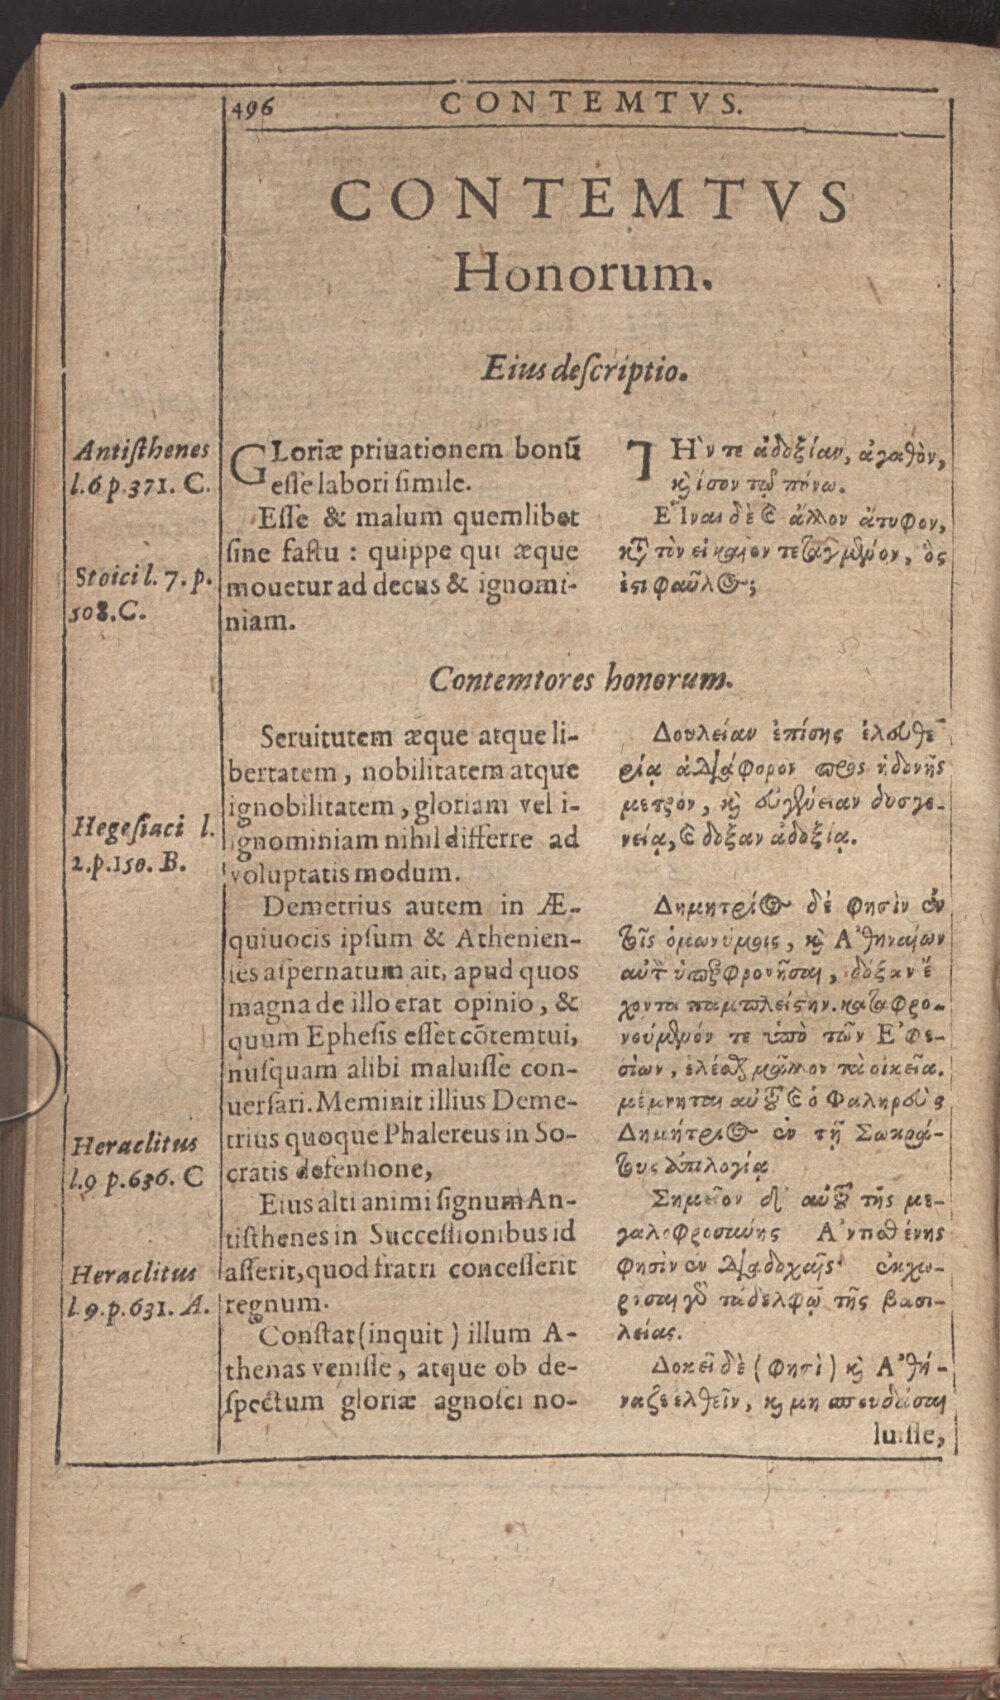 496
CONTEMTVS.
CONTEMTVS
Honorum.
Eius descriptio.
Antisthenes
l.6 p.371. C.
Stoici l. 7. p.
508.C.
GLoriæ priuationem bonũ
esse labori simile.
Esse & malum quemlibet
sine fastu : quippe qui æque
mouetur ad decus & ignomi-
niam.
ΤΗν τε ἀδοξίαν, ἀγαθὸν,
κὶ ἴσον τῷ πόνῳ.
Εἶναι δὲ καὶ ἄλλον ἄτυφον,
κατὰ τὸν εἰκαῖον τεταγμένον, ὅς
ἐστι φαῦλος;
Contemtores honorum.
Hegesiaci l.
2.p.150. B.
Heraclitus
l.9 p.636. C
Heraclitus
l.9.p.631. A.
Seruitutem æque atque li-
bertatem, nobilitatem atque
ignobilitatem, gloriam vel i-
gnominiam nihil differre ad
voluptatis modum.
Demetrius autem in Æ-
quiuocis ipsum & Athenien-
ses aspernatum ait, apud quos
magna de illo erat opinio, &
quum Ephesis esset cõtemtui,
nusquam alibi maluisse con-
uersari. Meminit illius Deme-
trius quoque Phalereus in So-
cratis defensione,
Eius alti animi signum An-
tisthenes in Successionibus id
asserit, quod fratri concesserit
regnum.
Constat (inquit) illum A-
thenas venisse, atque ob de-
spectum gloriæ agnosci no-
Δουλείαν ἐπίσης ἐλουθε
ρίᾳ ἀδιάφορον πρὸς ἡδονῆς
μέτρον, κὶ εὐγένειαν δυσγε-
νείᾳ, καὶ δόξαν ἀδοξίᾳ.
Δημήτριος δέ φησὶν ἐν
τοῖς ὁμωνύμοις, κὶ Ἀθηναίων
αὐτὸν ὑπερφρονῆσαι, δόξαν ἔ
χοντα παμπλείστην. καταφρο-
νούμενόν τε ὑπὸ τῶν Ἐφε-
σίων, ἑλέσθαι μᾶλλον τὰ οἰκεῖα.
μέμνηται αὐτοῦ καὶ ὁ Φαληρεὺς
Δημήτριος ἐν τῇ Σωκρά-
τους ἀπολογίᾳ
Σημεῖον δ' αὐτοῦ τῆς με-
γαλοφροσύνης Ἀντισθένης
φησὶν ἐν διαδοχαῖς· ἐκχω-
ρῆσαι γὰρ τἀδελφῷ τῆς βασι-
λείας.
Δοκεῖ δὲ (φησὶ) κὶ Ἀθή-
ναζε ἐλθεῖν, κὶ μη σπουδάσαι
luisse,